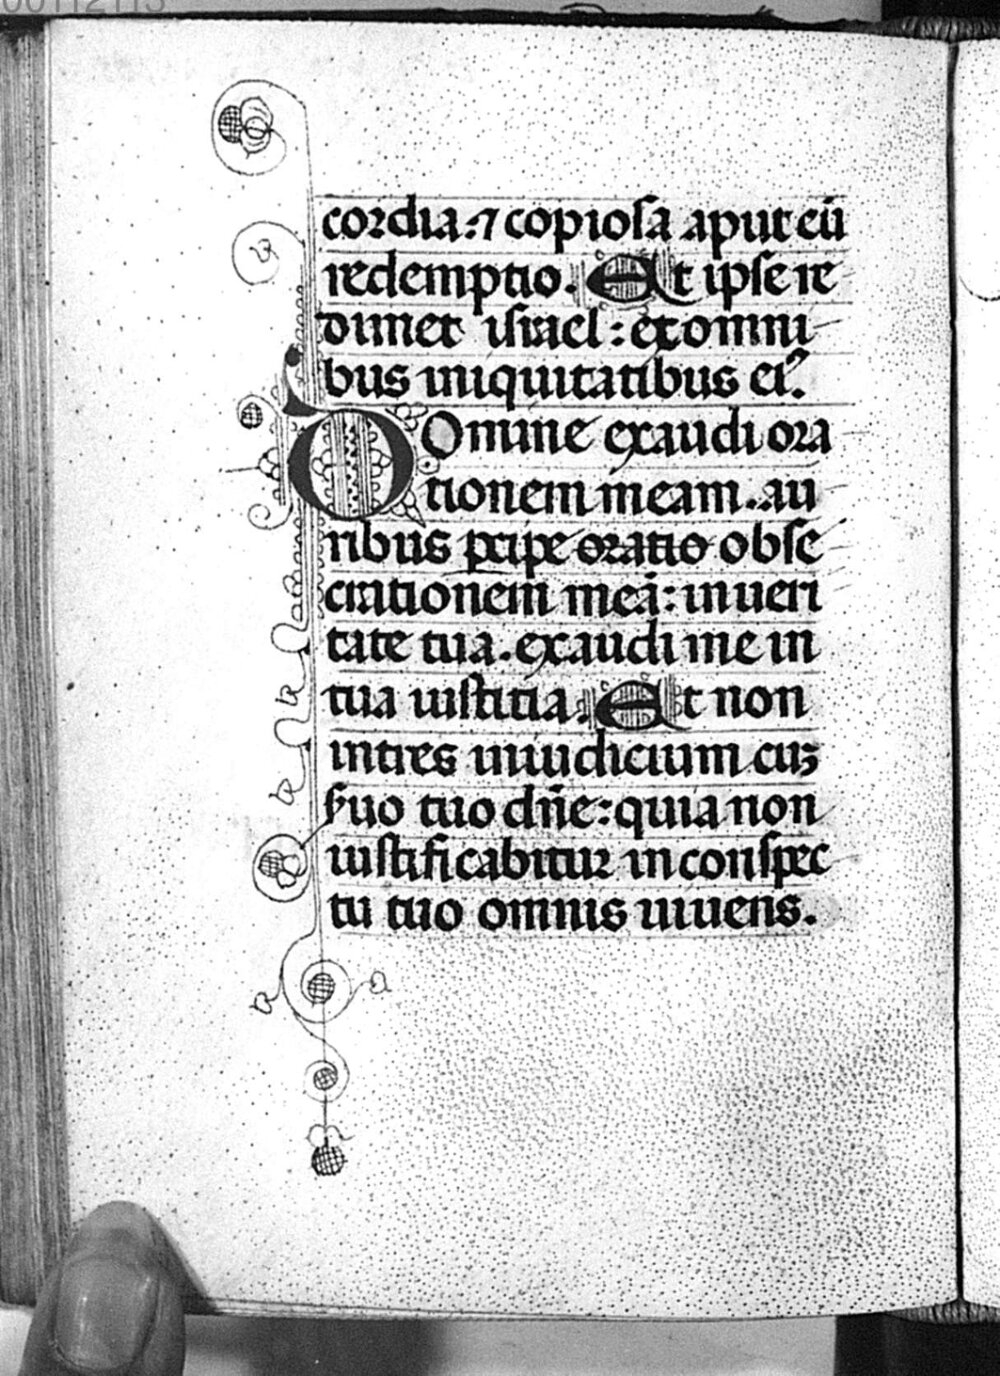 cordia: ⁊ copiosa aput eū
redemptio. Et ipse re
dimet israel: et omni
bus iniquitatibus eiꝰ.
DOmine exaudi ora
tionem meam. au
ribus ꝑcipe oratio obse
crationem meā: in ueri
tate tua. exaudi me in
tua iustitia. Et non
intres in iudicium cuꝫ
ẜuo tuo dn̄e: quia non
iustificabitur in conspec
tu tuo omnis uiuens.